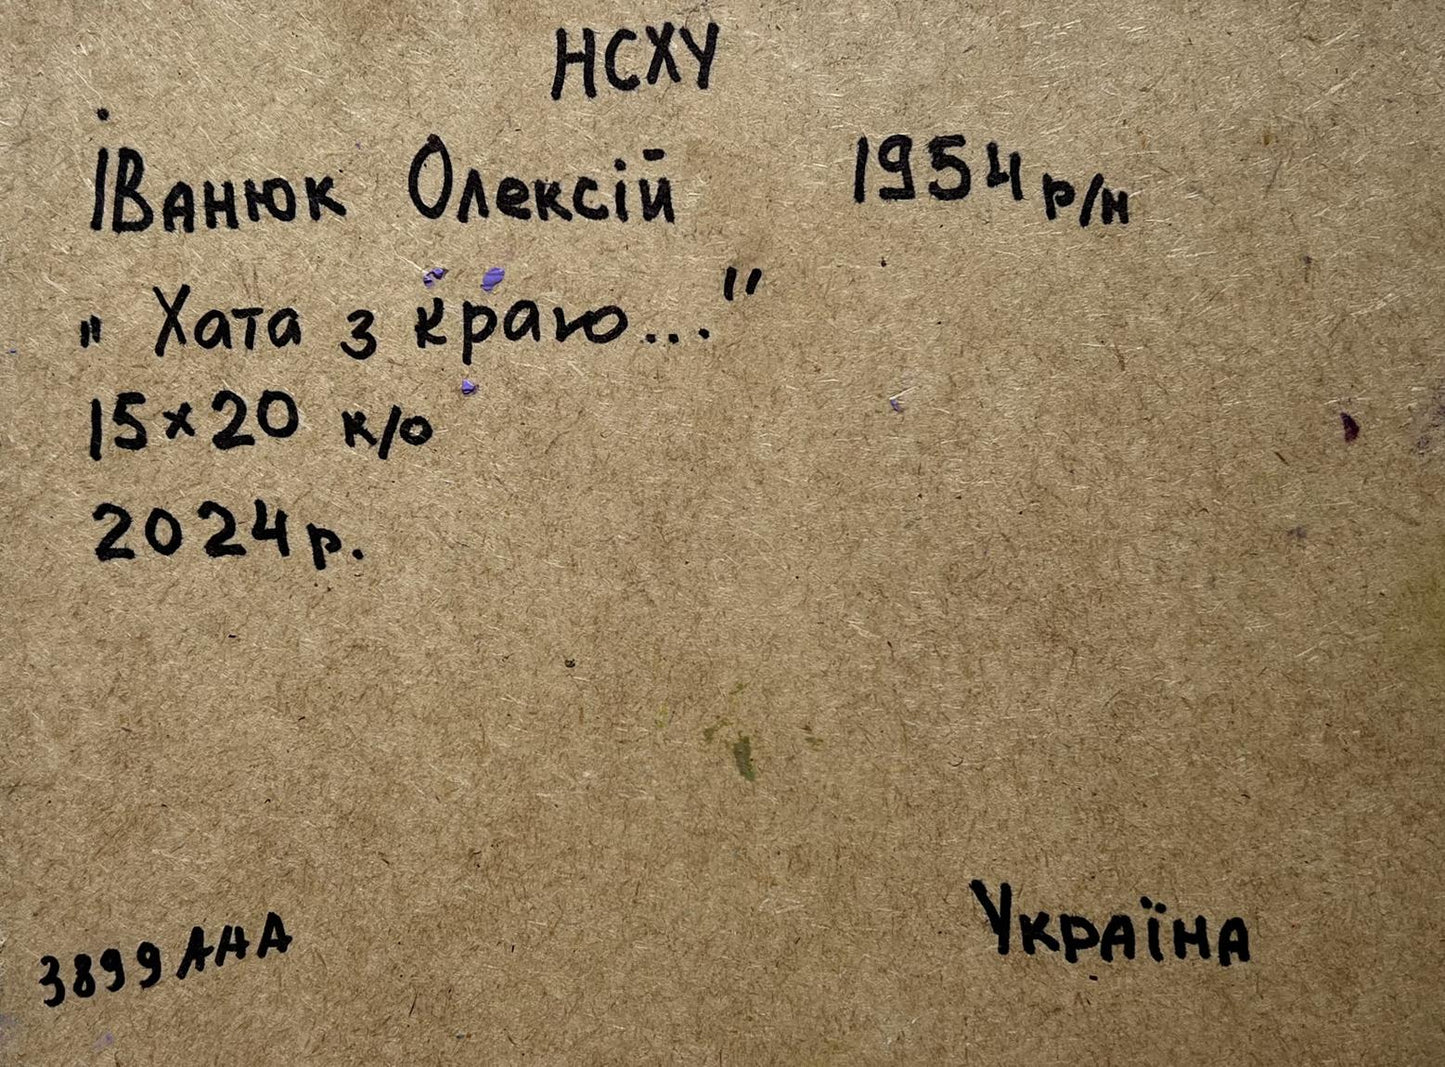 НСХУ
Іванюк Олексій 1954 р/н
„ Хата з краю..."
15×20 к/о
2024 р.
3899 АНА
Україна